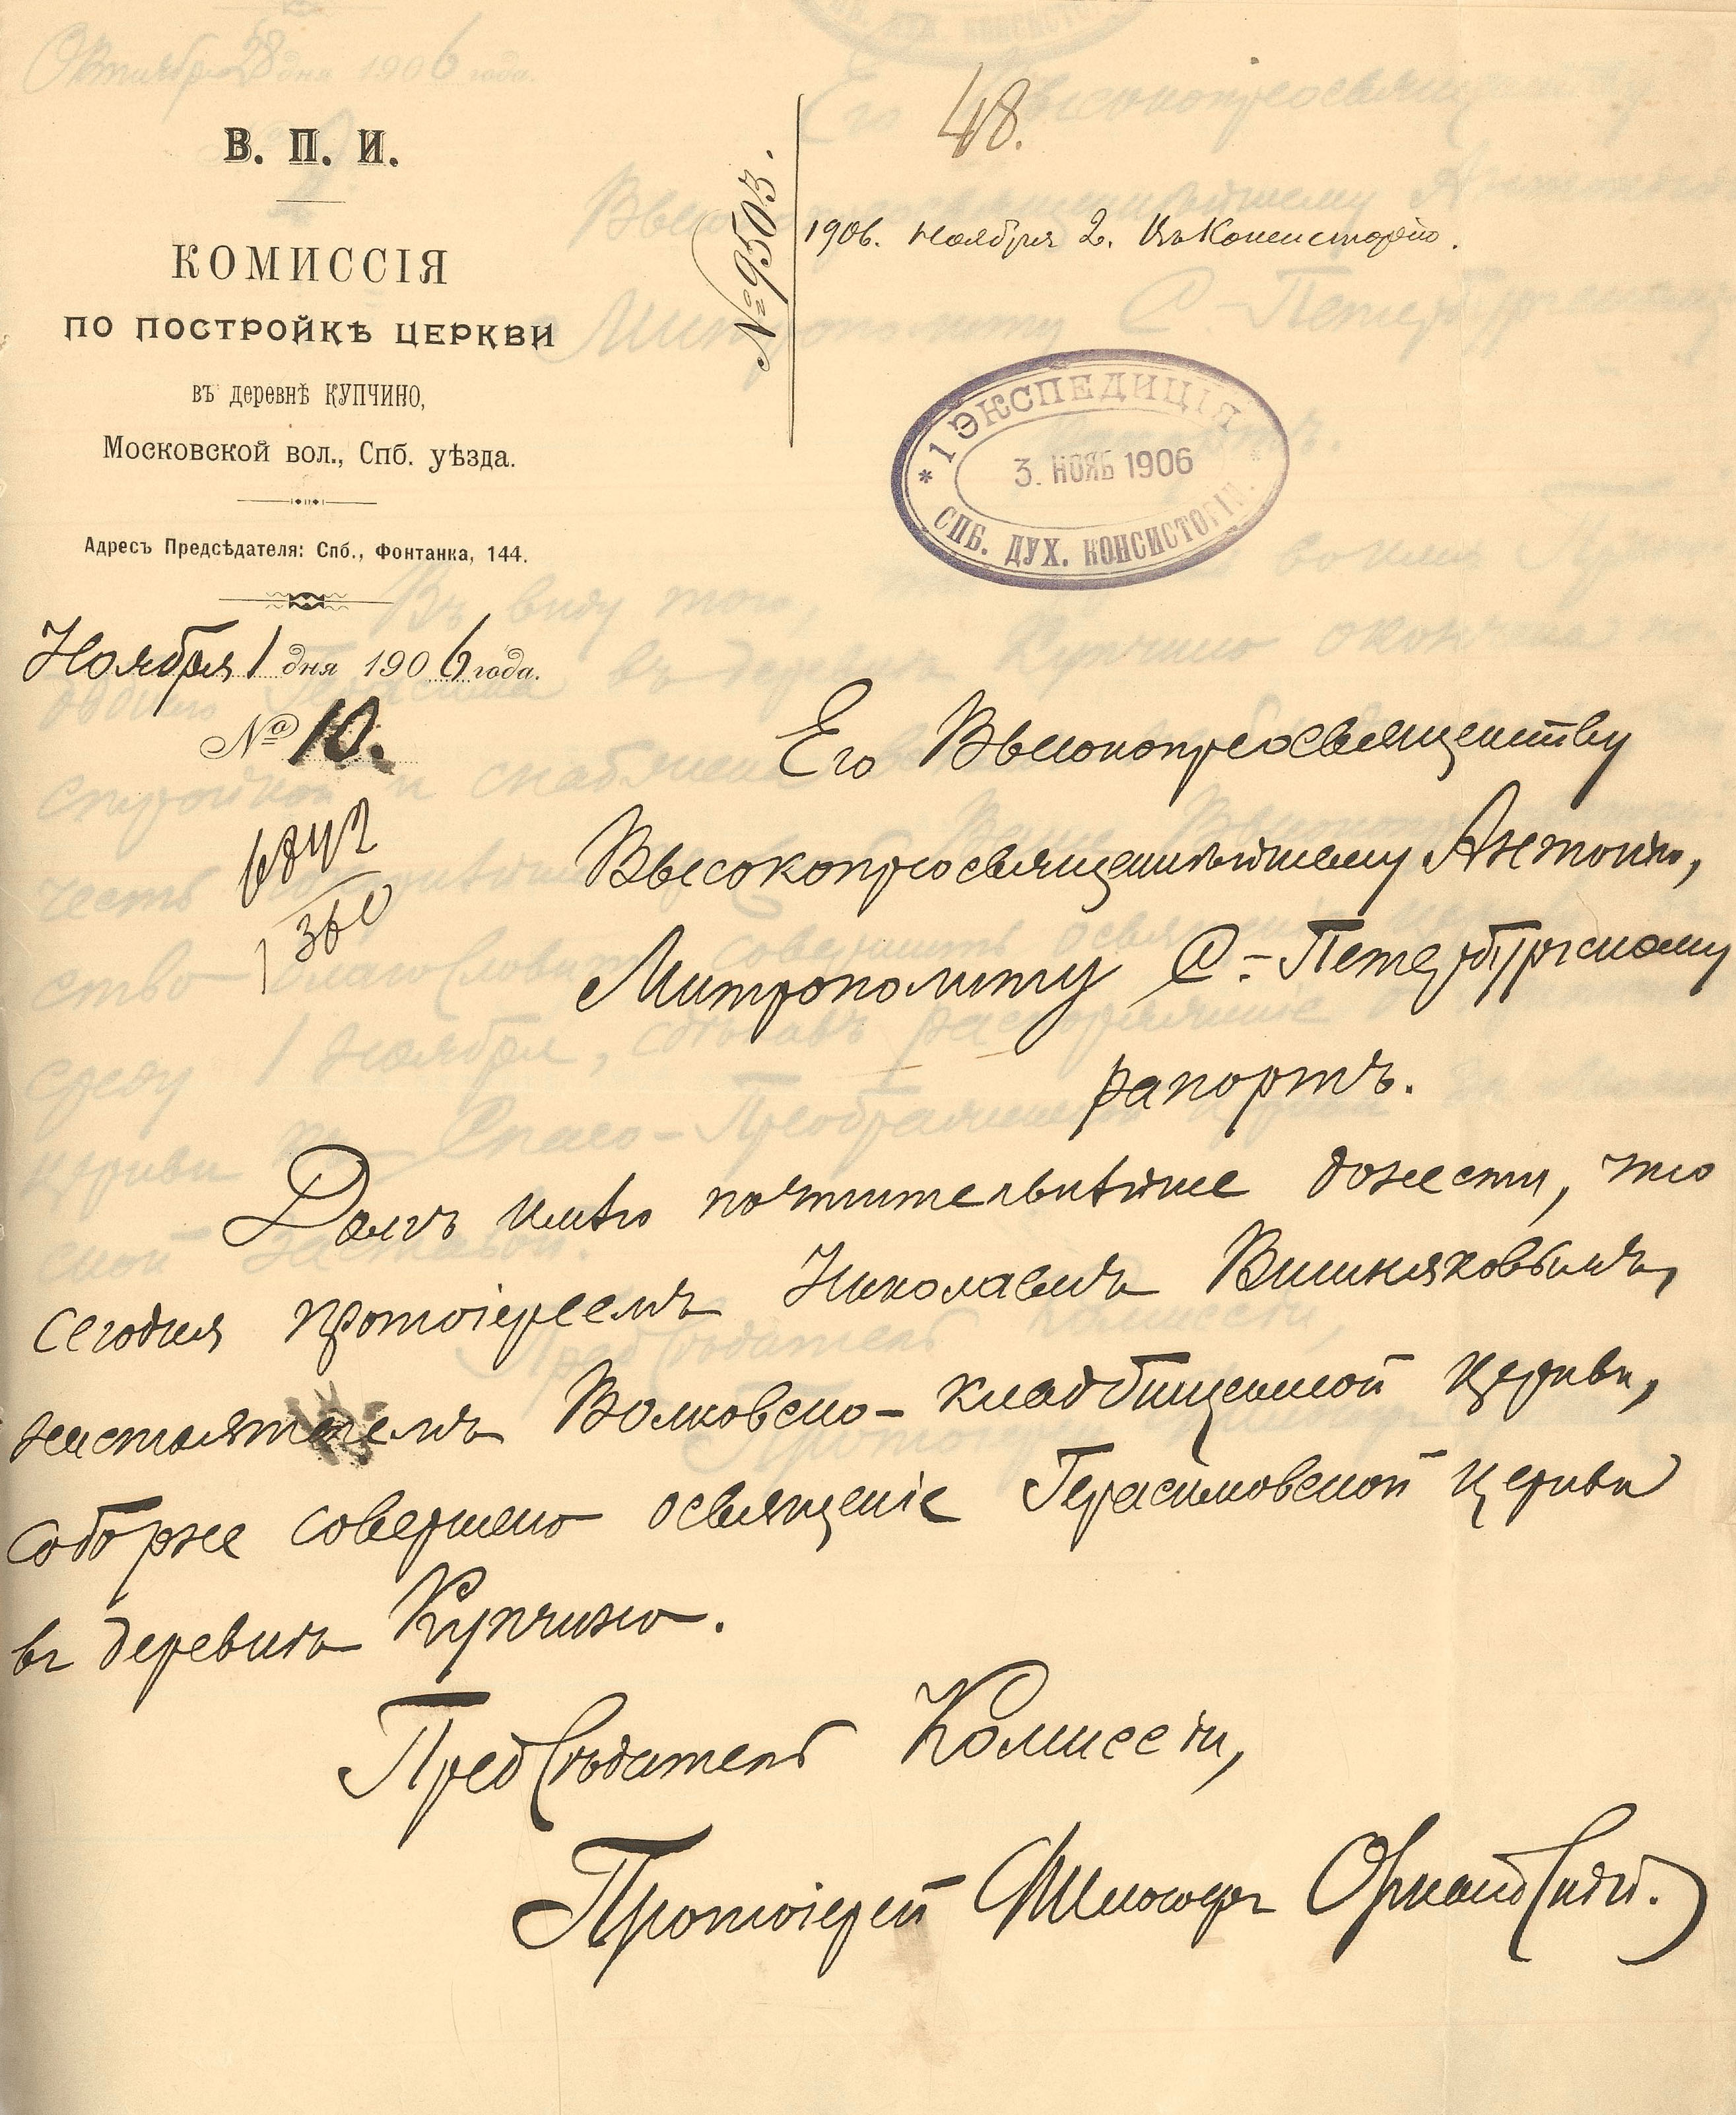 В. П. И.
КОМИССІЯ
ПО ПОСТРОЙКѢ ЦЕРКВИ
въ деревнѣ КУПЧИНО,
Московской вол., Спб. уѣзда.
Адресъ Предсѣдателя: Спб., Фонтанка, 144.
Ноября 1 дня 1906 года.
№ 10.
1360
48.
№ 9503.
1906. Ноября 2. Въ Консисторію.
1 ЭКСПЕДИЦІЯ
3. НОЯБ 1906
СПБ. ДУХ. КОНСИСТОРІИ.
Его Высокопреосвященству
Высокопреосвященнѣйшему Антонію,
Митрополиту С.-Петербургскому
рапортъ.
Долгъ имѣю почтительнѣйше донести, что
сегодня протоіереемъ Николаемъ Вишняковымъ,
настоятелемъ Волковско-кладбищенской церкви,
соборне совершено освященіе Герасимовской церкви
въ деревнѣ Купчино.
Предсѣдатель Комиссіи,
Протоіерей Философъ Орнатскій.